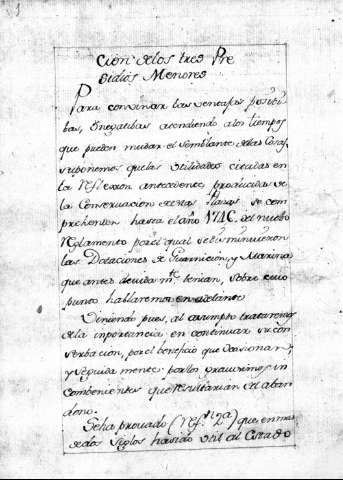 cion de los tres Pre
sidios Menores
Para convinar las ventajas positi
bas, ò negatibas atendiendo alos tiempos
que pueden mudar el semblante delas Cosas
suponemos quelas Utilidades citadas en
la Reflexion antecedente, producidas de
la Conservacion destas Plazas se com
prehenden hasta el año 1746. del nuebo
Reglamento por el qual se disminuieron
las Dotaciones de Guarnicion, y Marina
que antes devidamte. tenian, sobre cuio
punto hablaremos en adelante
Viniendo pues, al asumpto trataremos
dela inportancia en continuar su con
serbacion, por el beneficio que ocasionan,
y seguidamente por los gravisimos in
combenientes que resultarian del aban
dono.
Seha provado (Refn. 2a) que en mas
de dos Siglos hansido util al Estado